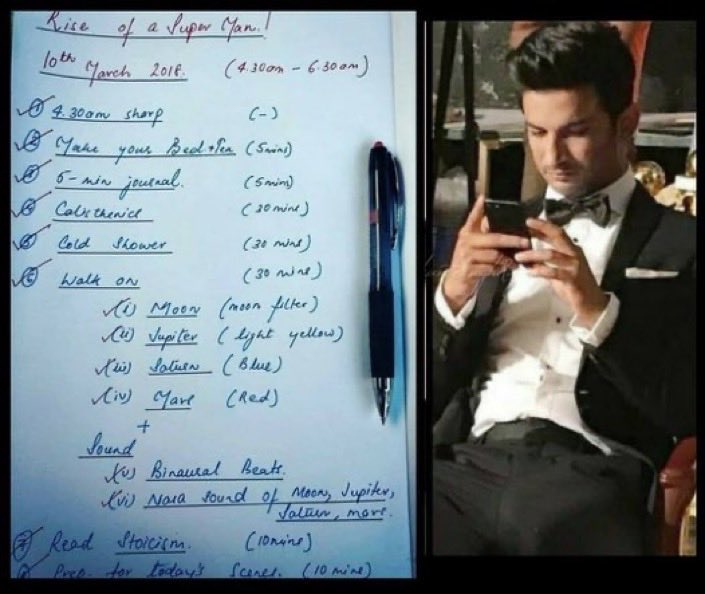 Rise of a Super Man!
10th March 2018. (4.30am - 6.30am)
① 4.30am sharp (-)
② Make your Bed + Tea (5mins)
5-min journal. (5mins)
Calisthenics (30 mins)
Cold Shower (30 mins)
Walk on (30 mins)
(i) Moon (moon filter)
(ii) Jupiter (light yellow)
(iii) Saturn (Blue)
(iv) Mars (Red)
+
Sound
(v) Binaural Beats.
(vi) Nasa sound of Moon, Jupiter,
Saturn, mars.
⑦ Read Stoicism. (10mins)
Prep. for today's Scenes. (10 mins)